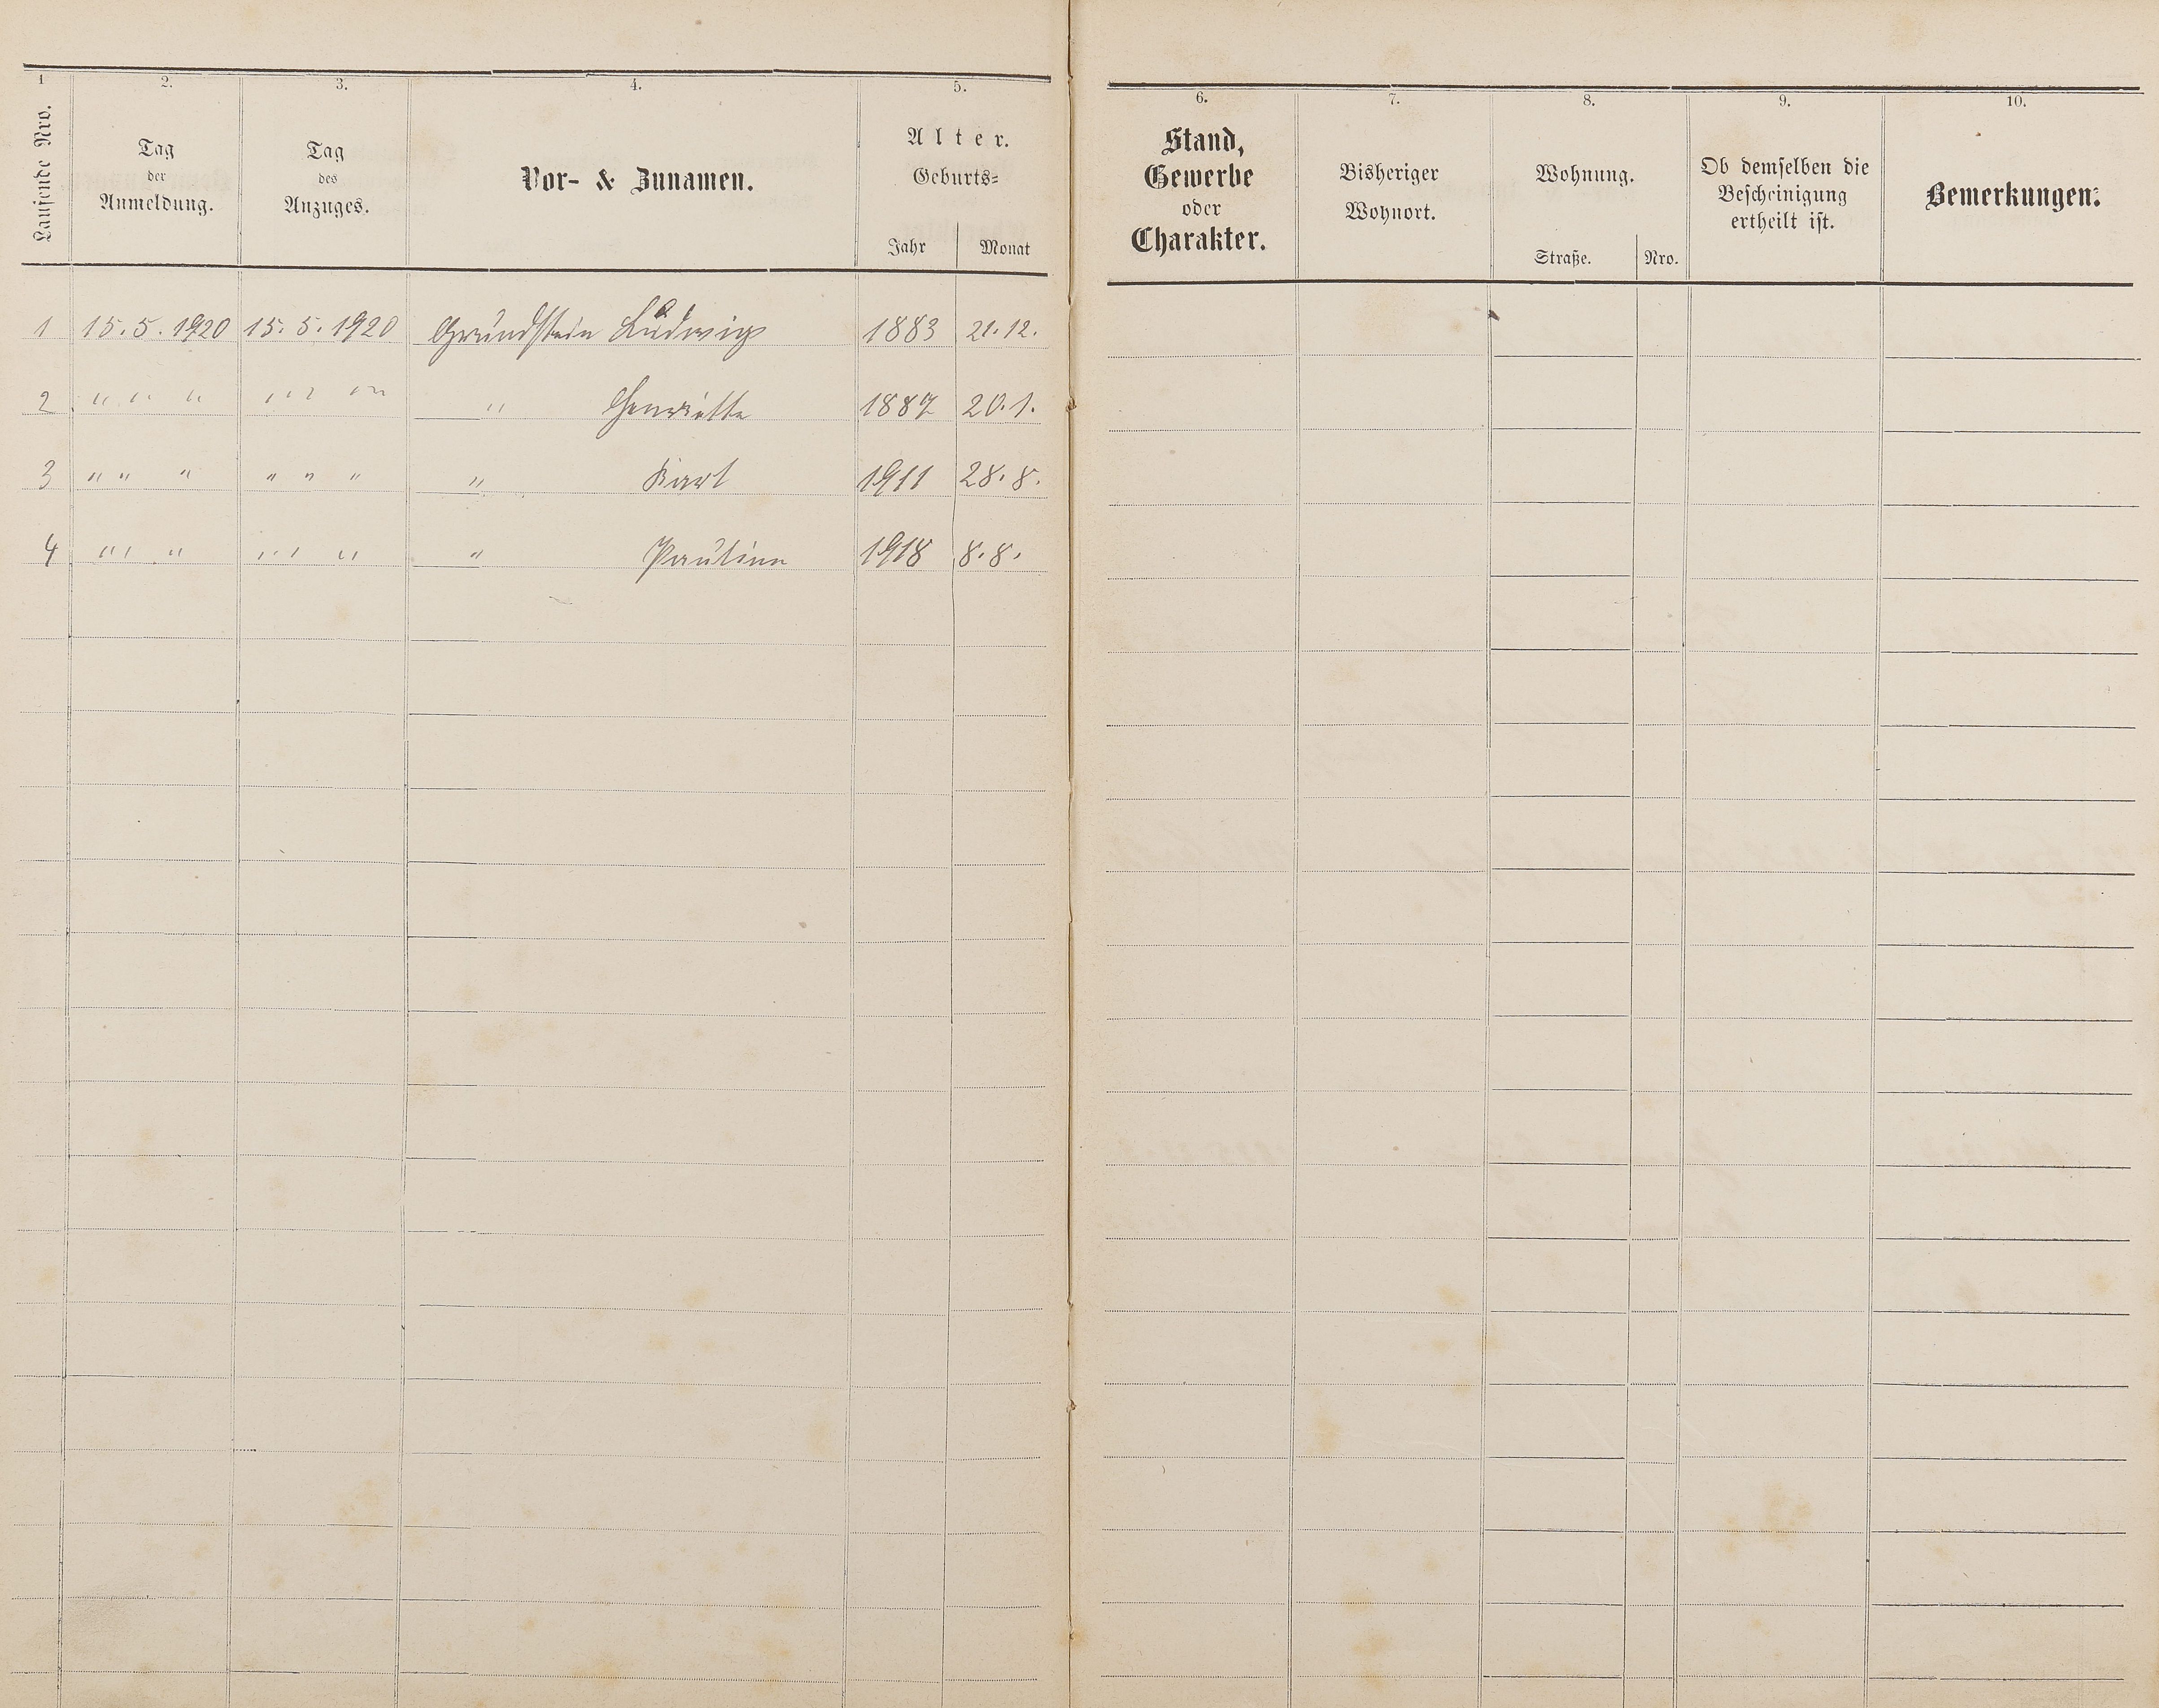 1 2. 3. 4. 5. 6. 7. 8. 9. 10.
Laufende Nro.
Tag
der
Anmeldung.
Tag
des
Anzuges.
Vor- & Zunamen.
Alter.
Geburts=
Jahr Monat
Stand,
Gewerbe
oder
Charakter.
Bisheriger
Wohnort.
Wohnung.
Straße. Nro.
Ob demselben die
Bescheinigung
ertheilt ist.
Bemerkungen.
1 15.5.1920 15.5.1920 Grundstein Ludwig 1883 21.12.
2 " " " " " " " Henriette 1887 20.1.
3 " " " " " " " Karl 1911 28.8.
4 " " " " " " " Pauline 1918 8.8.